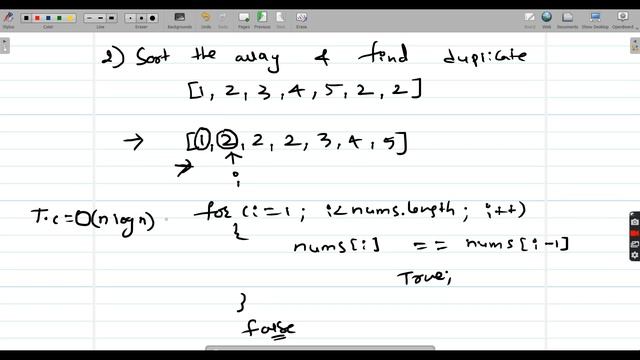 Stylus Color Line Width Eraser Backgrounds Undo Redo Page Previous Next Erase Desktop Web Browser Documents Show
2) Sort the array & find duplicate
[1, 2, 3, 4, 5, 2, 2]
→ [1, 2, 2, 2, 3, 4, 5]
i
T.c = O(n log n) for (i = 1; i < nums.length; i++)
{
nums[i] == nums[i-1]
True;
}
false